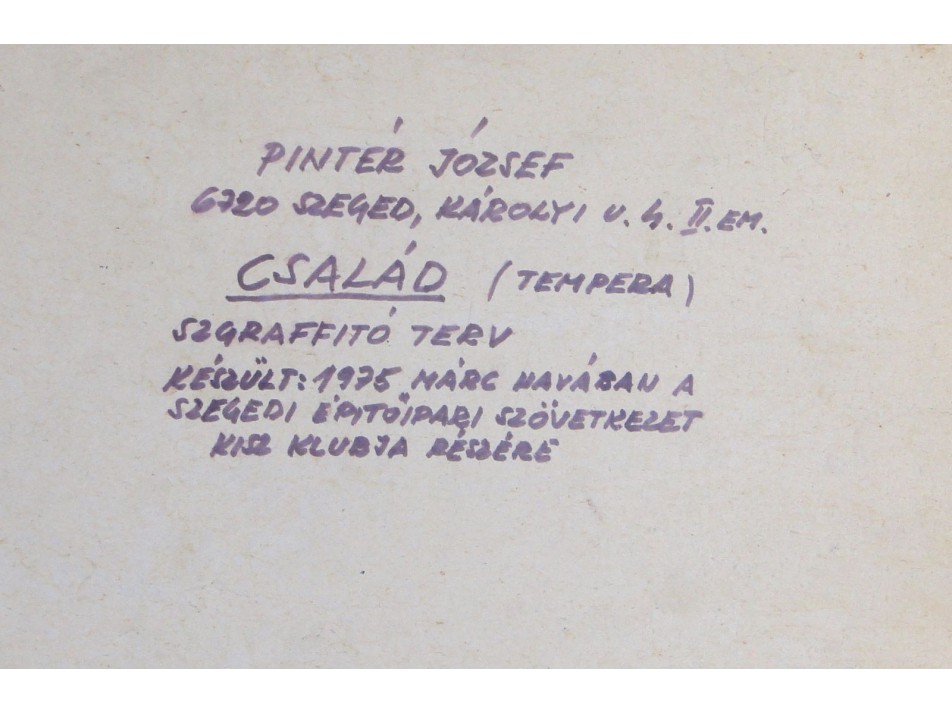 PINTÉR JÓZSEF
6720 SZEGED, KÁROLYI U. 4. II. EM.
CSALÁD (TEMPERA)
SZGRAFFITÓ TERV
KÉSZÜLT: 1975 MÁRC HAVÁBAN A
SZEGEDI ÉPITŐIPARI SZÖVETKEZET
KISZ KLUBJA RÉSZÉRE